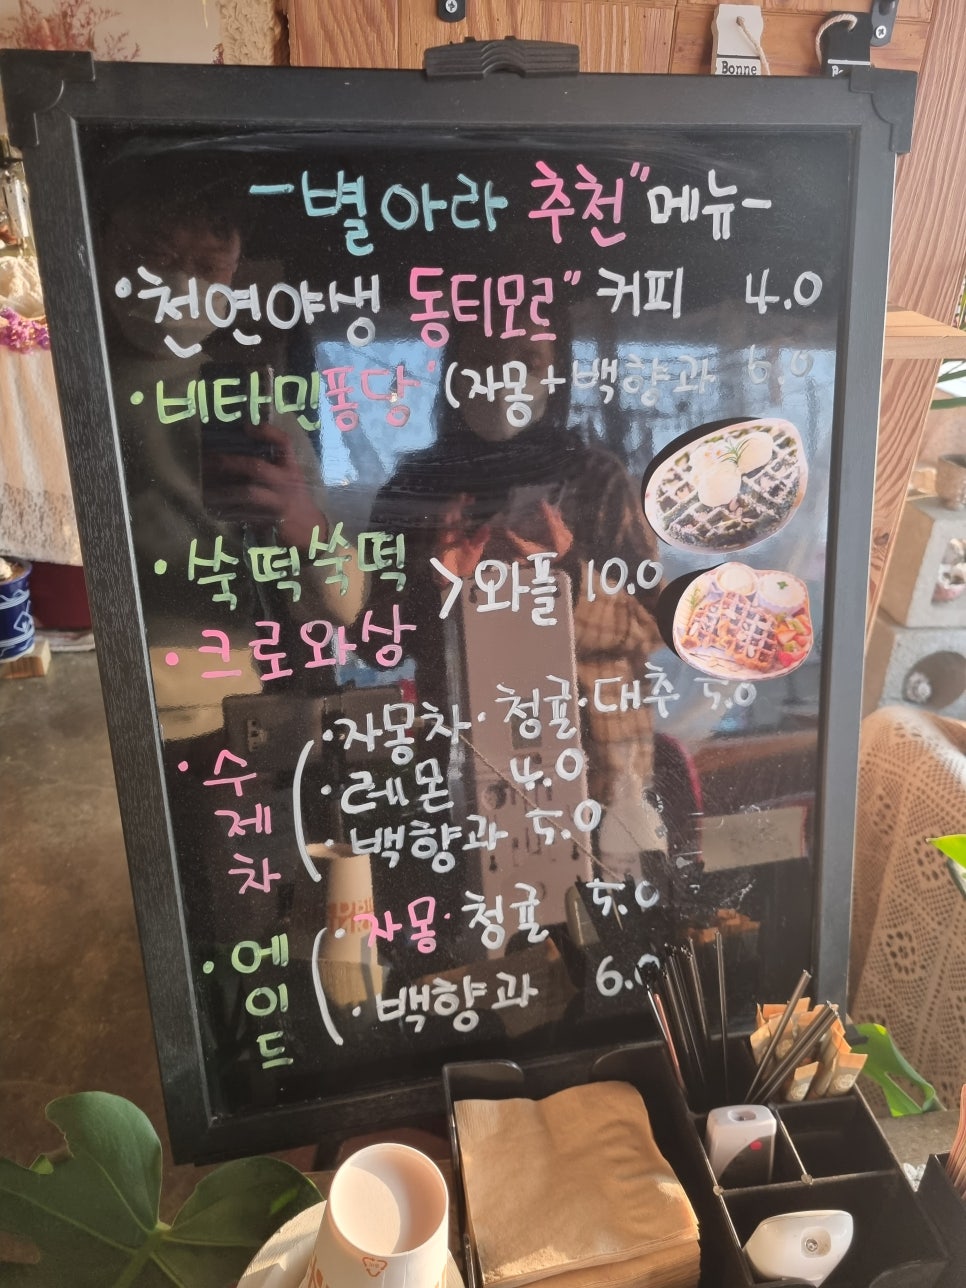 Bonne
-별아라 추천" 메뉴-
·천연야생 동티모르" 커피 4.0
·비타민퐁당" (자몽+백향과 6.0
·쑥떡쑥떡
·크로와상 >와플 10.0
·수제차 (·자몽차·청귤·대추 5.0
·레몬 4.0
·백향과 5.0
·에이드 (·자몽·청귤 5.0
·백향과 6.0